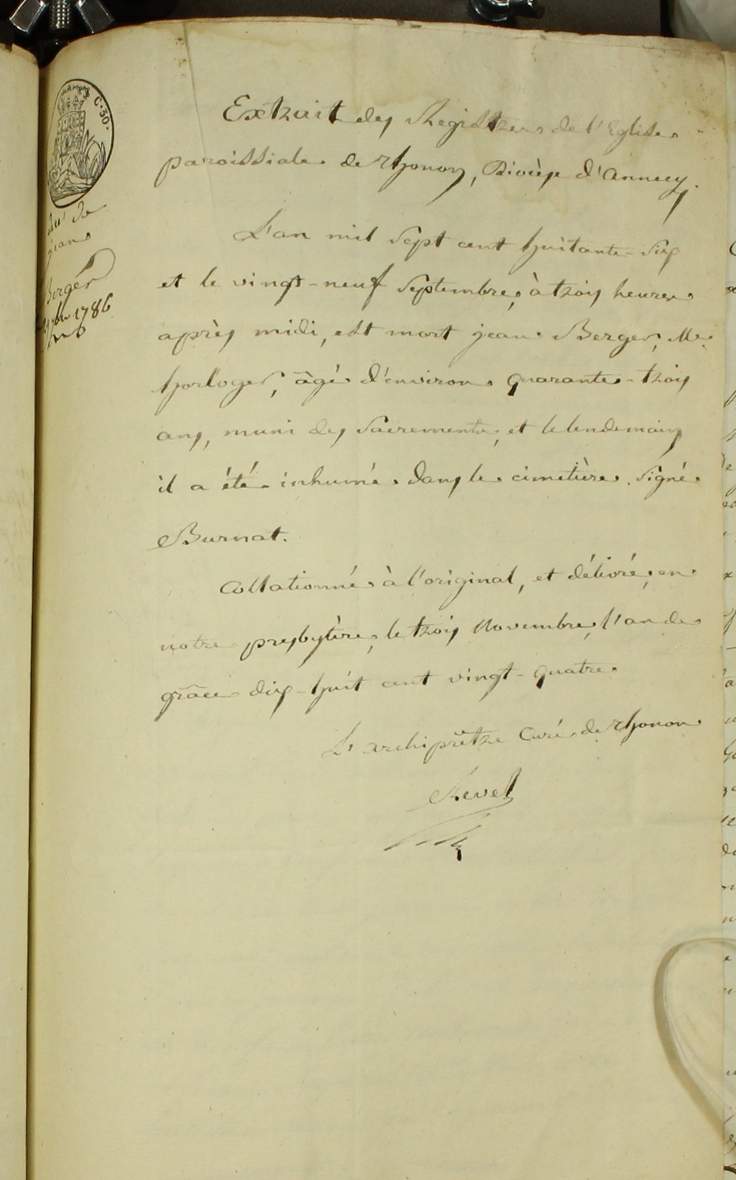 C. 50.
du Sr
jean
Berger
29 7bre 1786
Extrait des Registres de l'Eglise
paroissiale de thonon, Diocèse d'annecy.
L'an mil sept cent huitante-six
et le vingt-neuf Septembre, à trois heures
après midi, est mort jean Berger, Me
horloger, âgé d'environ quarante-trois
ans, muni des Sacrements, et le lendemain
il a été inhumé dans le cimetière. signé
Burnat.
Collationné à l'original, et délivré, en
notre presbytère, le trois Novembre, l'an de
grâce dix-huit cent vingt-quatre.
L'archiprêtre Curé de thonon